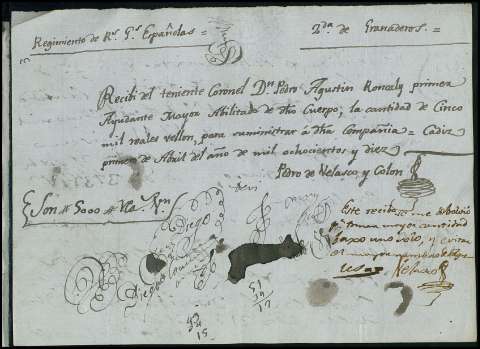 Regimiento de Rs. Gs. Españolas = 2da. de Granaderos. =
Recibí del teniente Coronel Dn. Pedro Agustin Roncaly primer
Ayudante Mayor Abilitado de dho Cuerpo, la cantidad de Cinco
mil reales vellon, para suministrar á dha Compañia = Cadiz
primero de Abril del año de mil ochocientos y diez
Pedro de Velasco y Colon
Son # 5000 # Rs. Vn
Diego
Este recibo se me debolvió
tomar mayor cantidad
bajo uno solo, y evitar
el mayor numero de
Velasco
Diego
51
17
15